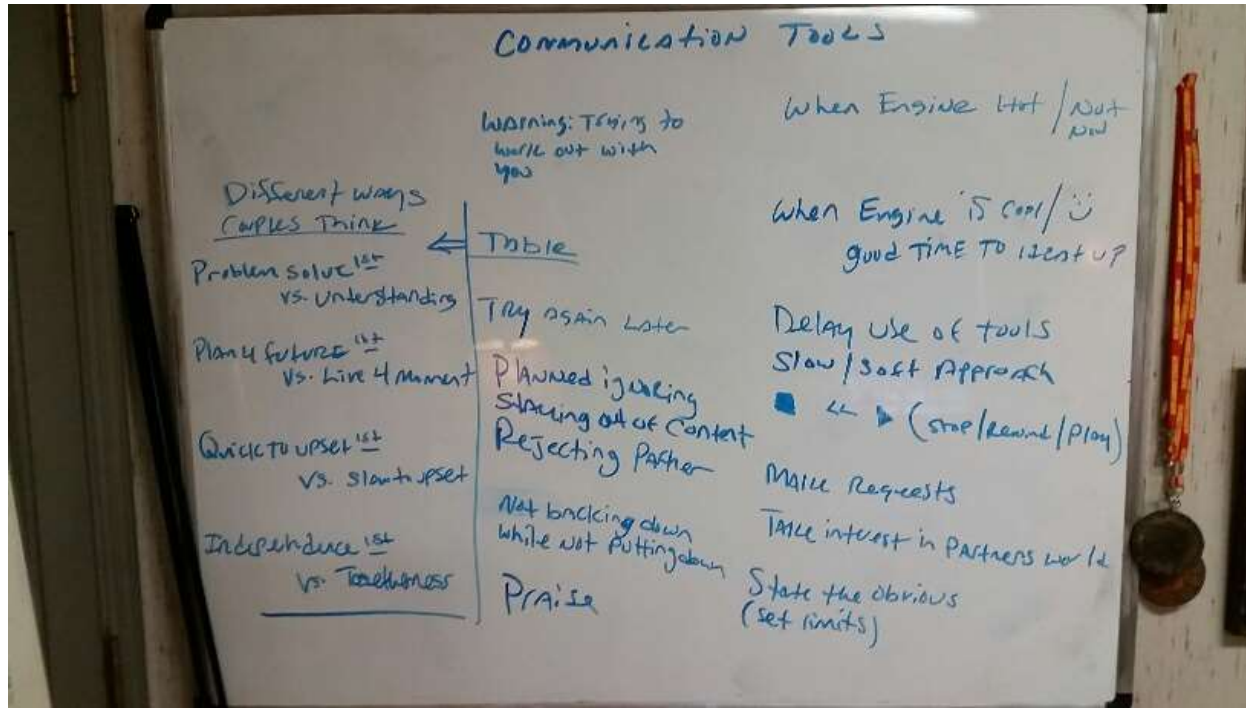 Communication Tools
Different ways
Couples Think
Problem solve 1st
vs. Understanding
Plan 4 future 1st
vs. Live 4 moment
Quick to upset 1st
vs. Slow to upset
Independence 1st
vs. Togetherness
Warning: Trying to
work out with
you
Table
Try again later
Planned ignoring
Staying out of Content
Rejecting Partner
Not backing down
while not putting down
Praise
When Engine Hot / Not
Now
When Engine is cool /
good TIME TO heat up
Delay use of tools
Slow/Soft Approach
<< (Stop/Rewind/Play)
Make Requests
Take interest in Partners world
State the obvious
(set limits)